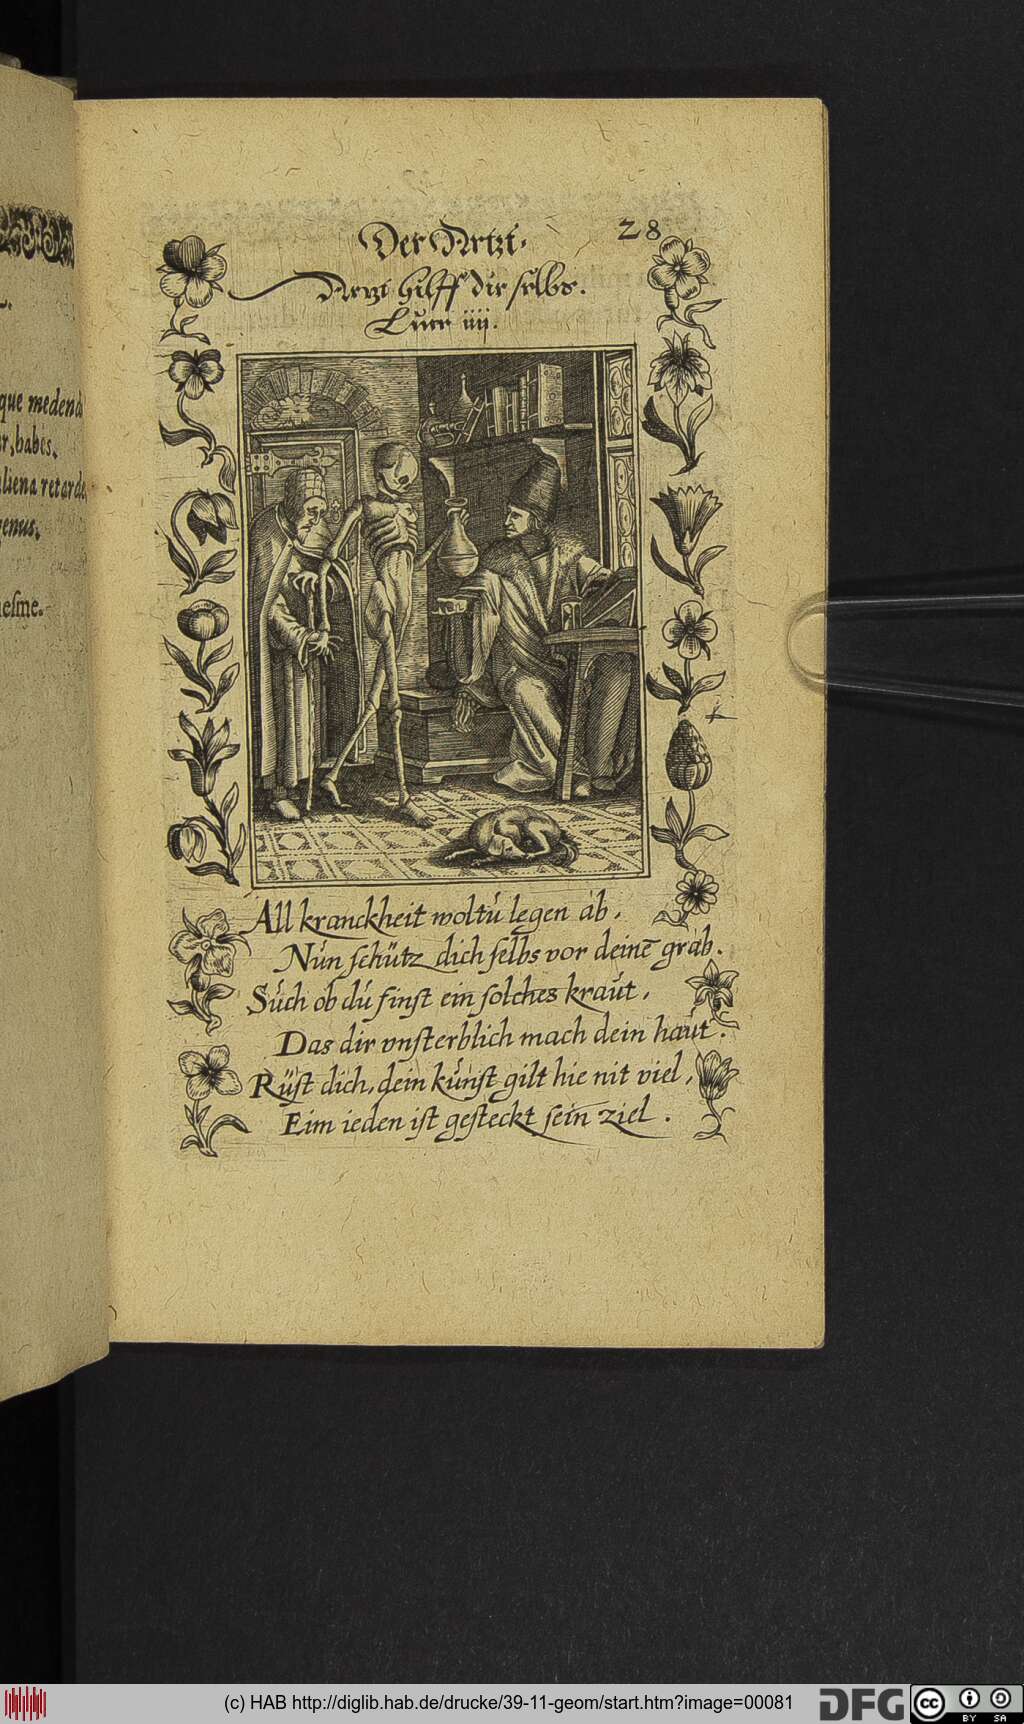 28
Der Artzt.
Artzt hilff dir selbs.
Luce iiij.
All kranckheit woltu legen ab,
Nun schütz dich selbs vor deinē grab.
Such ob du finst ein solches kraut,
Das dir vnsterblich mach dein haut.
Rüst dich, dein kunst gilt hie nit viel,
Eim ieden ist gesteckt sein ziel.
que medend
r, habes.
liena retarde
genus.
esme.
(c) HAB http://diglib.hab.de/drucke/39-11-geom/start.htm?image=00081
DFG
cc
BY SA